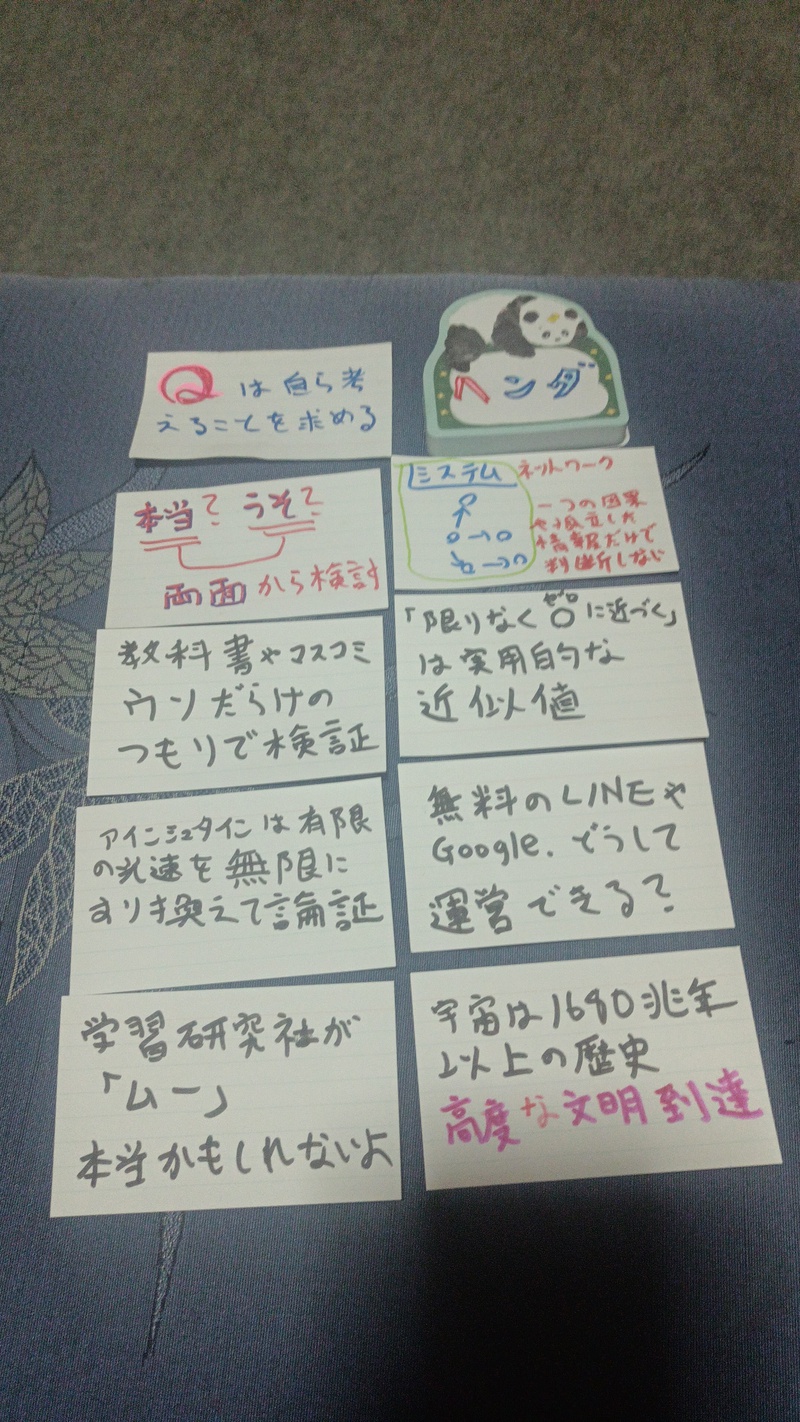 Qは自ら考
えることを求める
ヘンダ
本当? うそ?
両面から検討
システム
ネットワーク
一つの因果
や孤立した
情報だけで
判断しない
教科書やマスコミ
ウソだらけの
つもりで検証
「限りなく0に近づく」
ゼロ
は実用的な
近似値
アインシュタインは有限
の光速を無限に
すり換えて論証
無料のLINEや
Google.どうして
運営できる?
学習研究社が
「ムー」
本当かもしれないよ
宇宙は1680兆年
以上の歴史
高度な文明到達